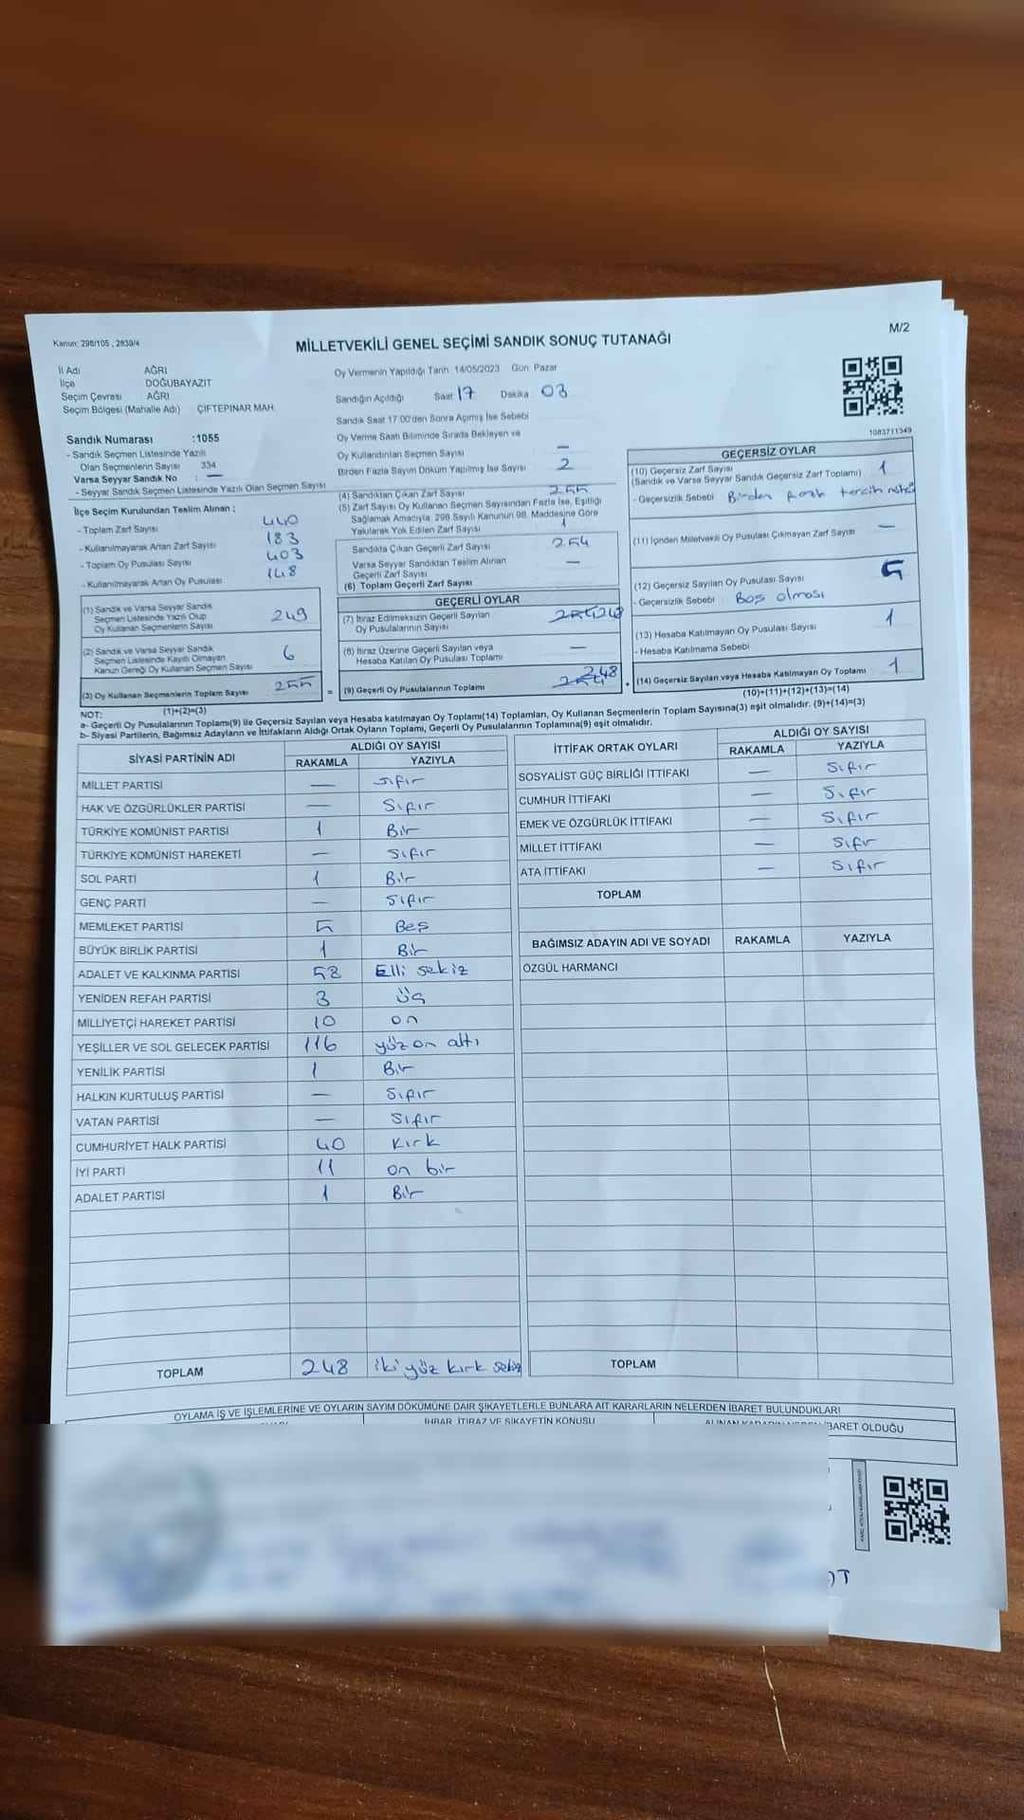 Kanun: 298/105 , 2839/4
M/2
MİLLETVEKİLİ GENEL SEÇİMİ SANDIK SONUÇ TUTANAĞI
İl Adı AĞRI
İlçe DOĞUBAYAZIT
Seçim Çevrası AĞRI
Seçim Bölgesi (Mahalle Adı) ÇİFTEPINAR MAH.
Sandık Numarası :1055
- Sandık Seçmen Listesinde Yazılı
Olan Seçmenlerin Sayısı 334
Varsa Seyyar Sandık No : —
- Seyyar Sandık Seçmen Listesinde Yazılı Olan Seçmen Sayısı
İlçe Seçim Kurulundan Teslim Alınan ;
- Toplam Zarf Sayısı 440
- Kullanılmayarak Artan Zarf Sayısı 183
- Toplam Oy Pusulası Sayısı 403
- Kullanılmayarak Artan Oy Pusulası 148
(1) Sandık ve Varsa Seyyar Sandık
Seçmen Listesinde Yazılı Olup
Oy Kullanan Seçmenlerin Sayısı 249
(2) Sandık ve Varsa Seyyar Sandık
Seçmen Listesinde Kayıtlı Olmayan
Kanun Gereği Oy Kullanan Seçmen Sayısı 6
(3) Oy Kullanan Seçmenlerin Toplam Sayısı 255
(1)+(2)=(3)
Oy Vermenin Yapıldığı Tarih 14/05/2023 Gün: Pazar
Sandığın Açıldığı Saat 17 Dakika 03
Sandık Saat 17:00'den Sonra Açımış İse Sebebi
Oy Verme Saati Bitiminde Sırada Bekleyen ve
Oy Kullandırılan Seçmen Sayısı —
Birden Fazla Sayım Döküm Yapılmış İse Sayısı 2
(4) Sandıktan Çıkan Zarf Sayısı 255
(5) Zarf Sayısı Oy Kullanan Seçmen Sayısından Fazla İse, Eşitliği
Sağlamak Amacıyla, 298 Sayılı Kanunun 98. Maddesine Göre
Yakılarak Yok Edilen Zarf Sayısı 1
Sandıkta Çıkan Geçerli Zarf Sayısı 254
Varsa Seyyar Sandıktan Teslim Alınan
Geçerli Zarf Sayısı —
(6) Toplam Geçerli Zarf Sayısı
GEÇERLİ OYLAR
(7) İtiraz Edilmeksizin Geçerli Sayılan
Oy Pusulalarının Sayısı 254 248
(8) İtiraz Üzerine Geçerli Sayılan veya
Hesaba Katılan Oy Pusulası Toplamı —
= (9) Geçerli Oy Pusulalarının Toplamı 254 248
1083711349
GEÇERSİZ OYLAR
(10) Geçersiz Zarf Sayısı 1
(Sandık ve Varsa Seyyar Sandık Geçersiz Zarf Toplamı)
- Geçersizlik Sebebi Birden fazla tercih
(11) İçinden Milletvekili Oy Pusulası Çıkmayan Zarf Sayısı —
(12) Geçersiz Sayılan Oy Pusulası Sayısı 5
- Geçersizlik Sebebi Boş olması
(13) Hesaba Katılmayan Oy Pusulası Sayısı 1
- Hesaba Katılmama Sebebi
(14) Geçersiz Sayılan veya Hesaba Katılmayan Oy Toplamı 1
(10)+(11)+(12)+(13)=(14)
NOT:
a- Geçerli Oy Pusulalarının Toplamı(9) ile Geçersiz Sayılan veya Hesaba katılmayan Oy Toplamı(14) Toplamları, Oy Kullanan Seçmenlerin Toplam Sayısına(3) eşit olmalıdır. (9)+(14)=(3)
b- Siyasi Partilerin, Bağımsız Adayların ve İttifakların Aldığı Ortak Oyların Toplamı, Geçerli Oy Pusulalarının Toplamına(9) eşit olmalıdır.
SİYASİ PARTİNİN ADI ALDIĞI OY SAYISI
RAKAMLA YAZIYLA
MİLLET PARTİSİ — sıfır
HAK VE ÖZGÜRLÜKLER PARTİSİ — Sıfır
TÜRKİYE KOMÜNİST PARTİSİ 1 Bir
TÜRKİYE KOMÜNİST HAREKETİ — Sıfır
SOL PARTİ 1 Bir
GENÇ PARTİ — Sıfır
MEMLEKET PARTİSİ 5 Beş
BÜYÜK BİRLİK PARTİSİ 1 Bir
ADALET VE KALKINMA PARTİSİ 58 Elli sekiz
YENİDEN REFAH PARTİSİ 3 üç
MİLLİYETÇİ HAREKET PARTİSİ 10 on
YEŞİLLER VE SOL GELECEK PARTİSİ 116 yüz on altı
YENİLİK PARTİSİ 1 Bir
HALKIN KURTULUŞ PARTİSİ — Sıfır
VATAN PARTİSİ — Sıfır
CUMHURİYET HALK PARTİSİ 40 Kırk
İYİ PARTİ 11 on bir
ADALET PARTİSİ 1 Bir
TOPLAM 248 iki yüz kırk sekiz
İTTİFAK ORTAK OYLARI ALDIĞI OY SAYISI
RAKAMLA YAZIYLA
SOSYALİST GÜÇ BİRLİĞİ İTTİFAKI — Sıfır
CUMHUR İTTİFAKI — Sıfır
EMEK VE ÖZGÜRLÜK İTTİFAKI — Sıfır
MİLLET İTTİFAKI — Sıfır
ATA İTTİFAKI — Sıfır
TOPLAM
BAĞIMSIZ ADAYIN ADI VE SOYADI RAKAMLA YAZIYLA
ÖZGÜL HARMANCI
TOPLAM
OYLAMA İŞ VE İŞLEMLERİNE VE OYLARIN SAYIM DÖKÜMÜNE DAİR ŞİKAYETLERLE BUNLARA AİT KARARLARIN NELERDEN İBARET BULUNDUKLARI
İHBAR, İTİRAZ VE ŞİKAYETİN KONUSU
İBARET OLDUĞU